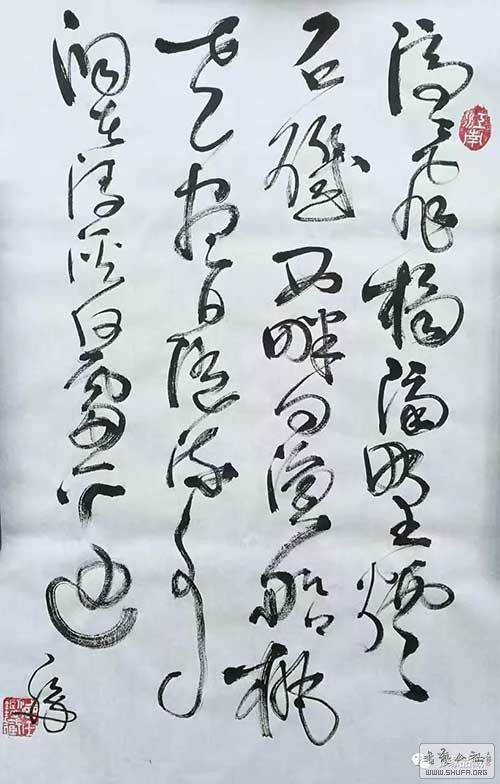 隐隐飞桥隔野烟
石矶西畔问渔船桃
花尽日随流水
洞在清溪何处边
江南
书艺公社
WWW.SHUFA.ORG